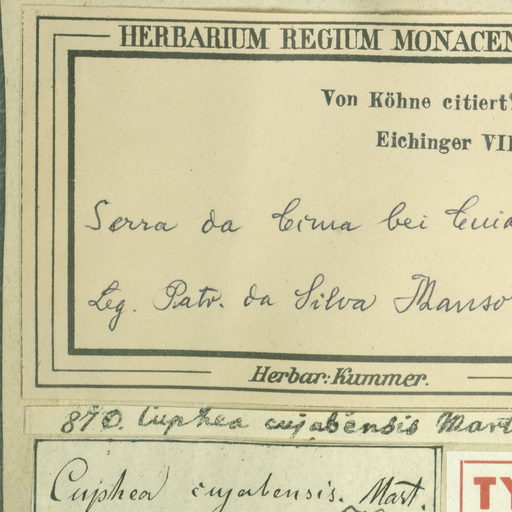 HERBARIUM REGIUM MONACEN
Von Köhne citiert?
Eichinger VII
Serra da Cima bei Cuia
Leg. Patr. da Silva Manso
Herbar: Kummer.
870. Cuphea cujabensis Mart
Cuphea cujabensis. Mart.
TY